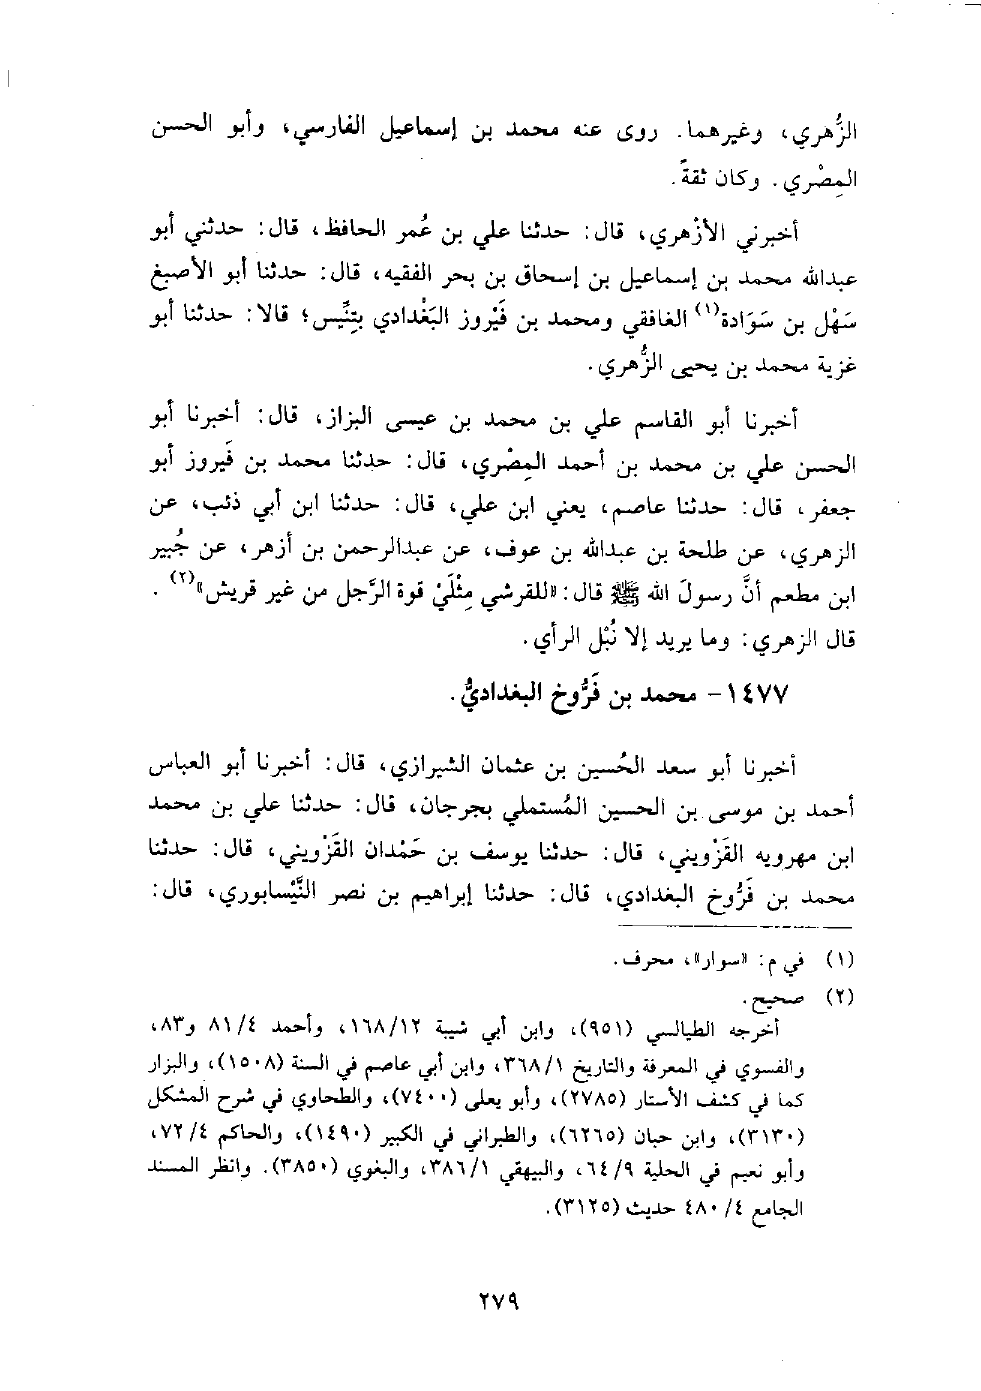 الزُّهري، وغيرهما. روى عنه محمد بن إسماعيل الفارسي، وأبو الحسن
المِصْري. وكان ثقةً.
أخبرني الأزْهري، قال: حدثنا علي بن عُمر الحافظ، قال: حدثني أبو
عبدالله محمد بن إسماعيل بن إسحاق بن بحر الفقيه، قال: حدثنا أبو الأصبغ
سَهْل بن سَوَادة(١) الغافقي ومحمد بن فَيْروز البَغْدادي بِتِنِّيس؛ قالا: حدثنا أبو
غزية محمد بن يحيى الزُّهري.
أخبرنا أبو القاسم علي بن محمد بن عيسى البزاز، قال: أخبرنا أبو
الحسن علي بن محمد بن أحمد المِصْري، قال: حدثنا محمد بن فَيروز أبو
جعفر، قال: حدثنا عاصم، يعني ابن علي، قال: حدثنا ابن أبي ذئب، عن
الزهري، عن طلحة بن عبدالله بن عوف، عن عبدالرحمن بن أزهر، عن جُبير
ابن مطعم أنَّ رسولَ الله ﷺ قال: «للقرشي مِثْلَيْ قوة الرَّجل من غير قريش»(٢).
قال الزهري: وما يريد إلا نُبْل الرأي.
١٤٧٧- محمد بن فَرُّوخ البغداديُّ.
أخبرنا أبو سعد الحُسين بن عثمان الشيرازي، قال: أخبرنا أبو العباس
أحمد بن موسى بن الحسين المُستملي بجرجان، قال: حدثنا علي بن محمد
ابن مهرويه القَزْويني، قال: حدثنا يوسف بن حَمْدان القَزْويني، قال: حدثنا
محمد بن فَرُّوخ البغدادي، قال: حدثنا إبراهيم بن نصر النَّيْسابوري، قال:
(١) في م: «سوار»، محرف.
(٢) صحيح.
أخرجه الطيالسي (٩٥١)، وابن أبي شيبة ١٦٨/١٢، وأحمد ٨١/٤ و٨٣،
والفسوي في المعرفة والتاريخ ٣٦٨/١، وابن أبي عاصم في السنة (١٥٠٨)، والبزار
كما في كشف الأستار (٢٧٨٥)، وأبو يعلى (٧٤٠٠)، والطحاوي في شرح المشكل
(٣١٣٠)، وابن حبان (٦٢٦٥)، والطبراني في الكبير (١٤٩٠)، والحاكم ٧٢/٤،
وأبو نعيم في الحلية ٦٤/٩، والبيهقي ٣٨٦/١، والبغوي (٣٨٥٠). وانظر المسند
الجامع ٤٨٠/٤ حديث (٣١٢٥).
٢٧٩